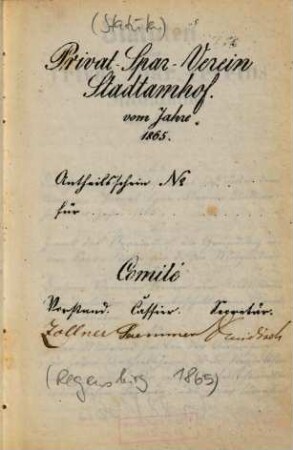 (Statuten)
Privat-Spar-Verein
Stadtamhof.
vom Jahre
1865.
Antheilsschein No
für
Comité
Vorstand. Cassier. Secretär.
Zollner
(Regensburg 1865)